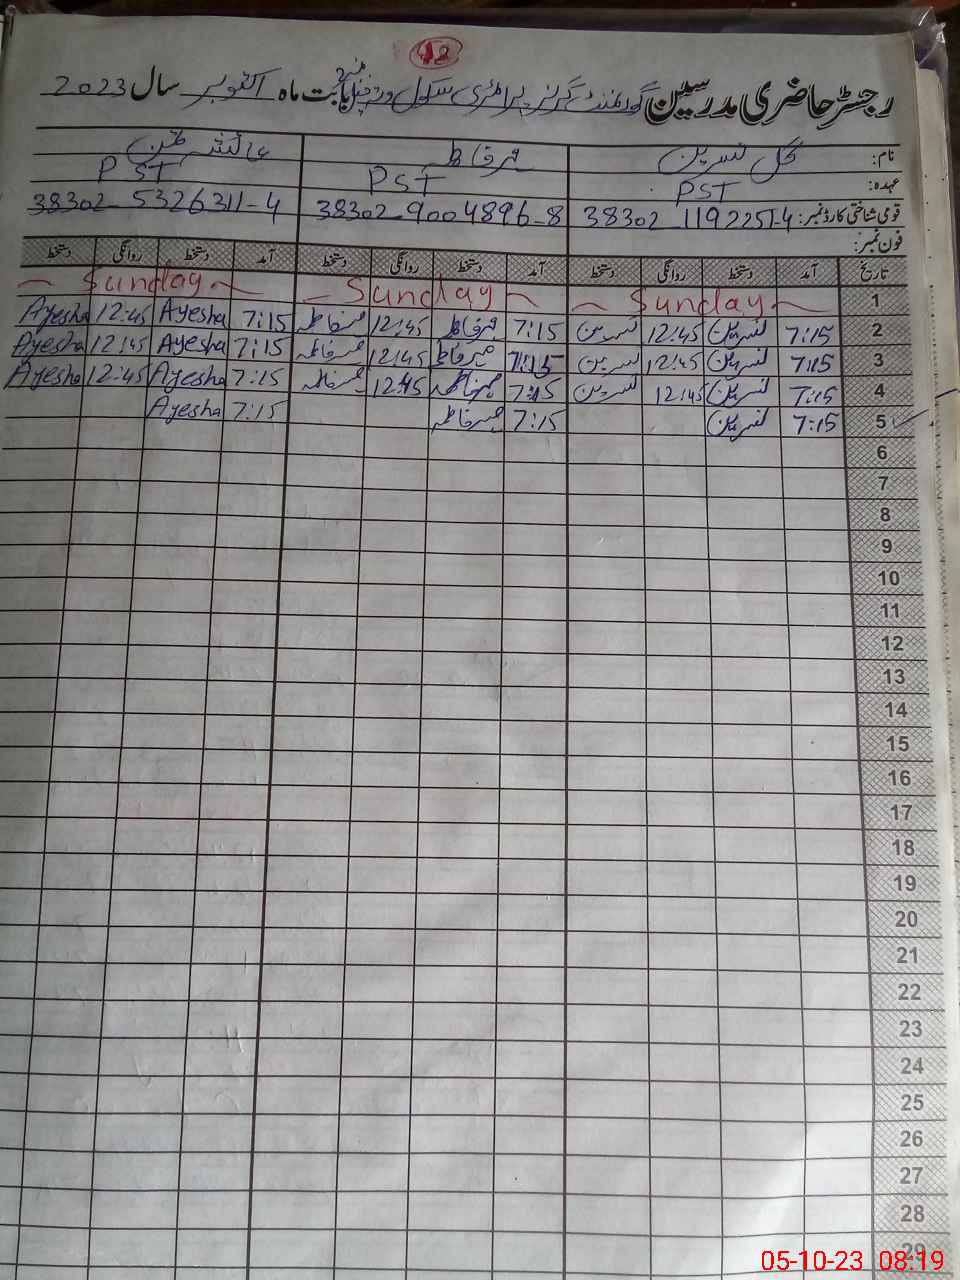 42
رجسٹر حاضری مدرسین گورنمنٹ گرلز پرائمری سکول بابت ماہ اکتوبر سال 2023
نام: گل نسرین عائشہ
عہدہ: PST PST PST
قومی شناختی کارڈ نمبر: 38302-1192251-4 38302-9004896-8 38302-5326311-4
فون نمبر:
تاریخ آمد دستخط روانگی دستخط آمد دستخط روانگی دستخط آمد دستخط روانگی دستخط
1 Sunday Sunday Sunday
2 7:15 نسرین 12:45 نسرین 7:15 12:45 7:15 Ayesha 12:45 Ayesha
3 7:15 نسرین 12:45 نسرین 7:15 12:45 7:15 Ayesha 12:45 Ayesha
4 7:15 نسرین 12:45 نسرین 7:15 12:45 7:15 Ayesha 12:45 Ayesha
5 7:15 نسرین 7:15 7:15 Ayesha
6
7
8
9
10
11
12
13
14
15
16
17
18
19
20
21
22
23
24
25
26
27
28
29
05-10-23 08:19